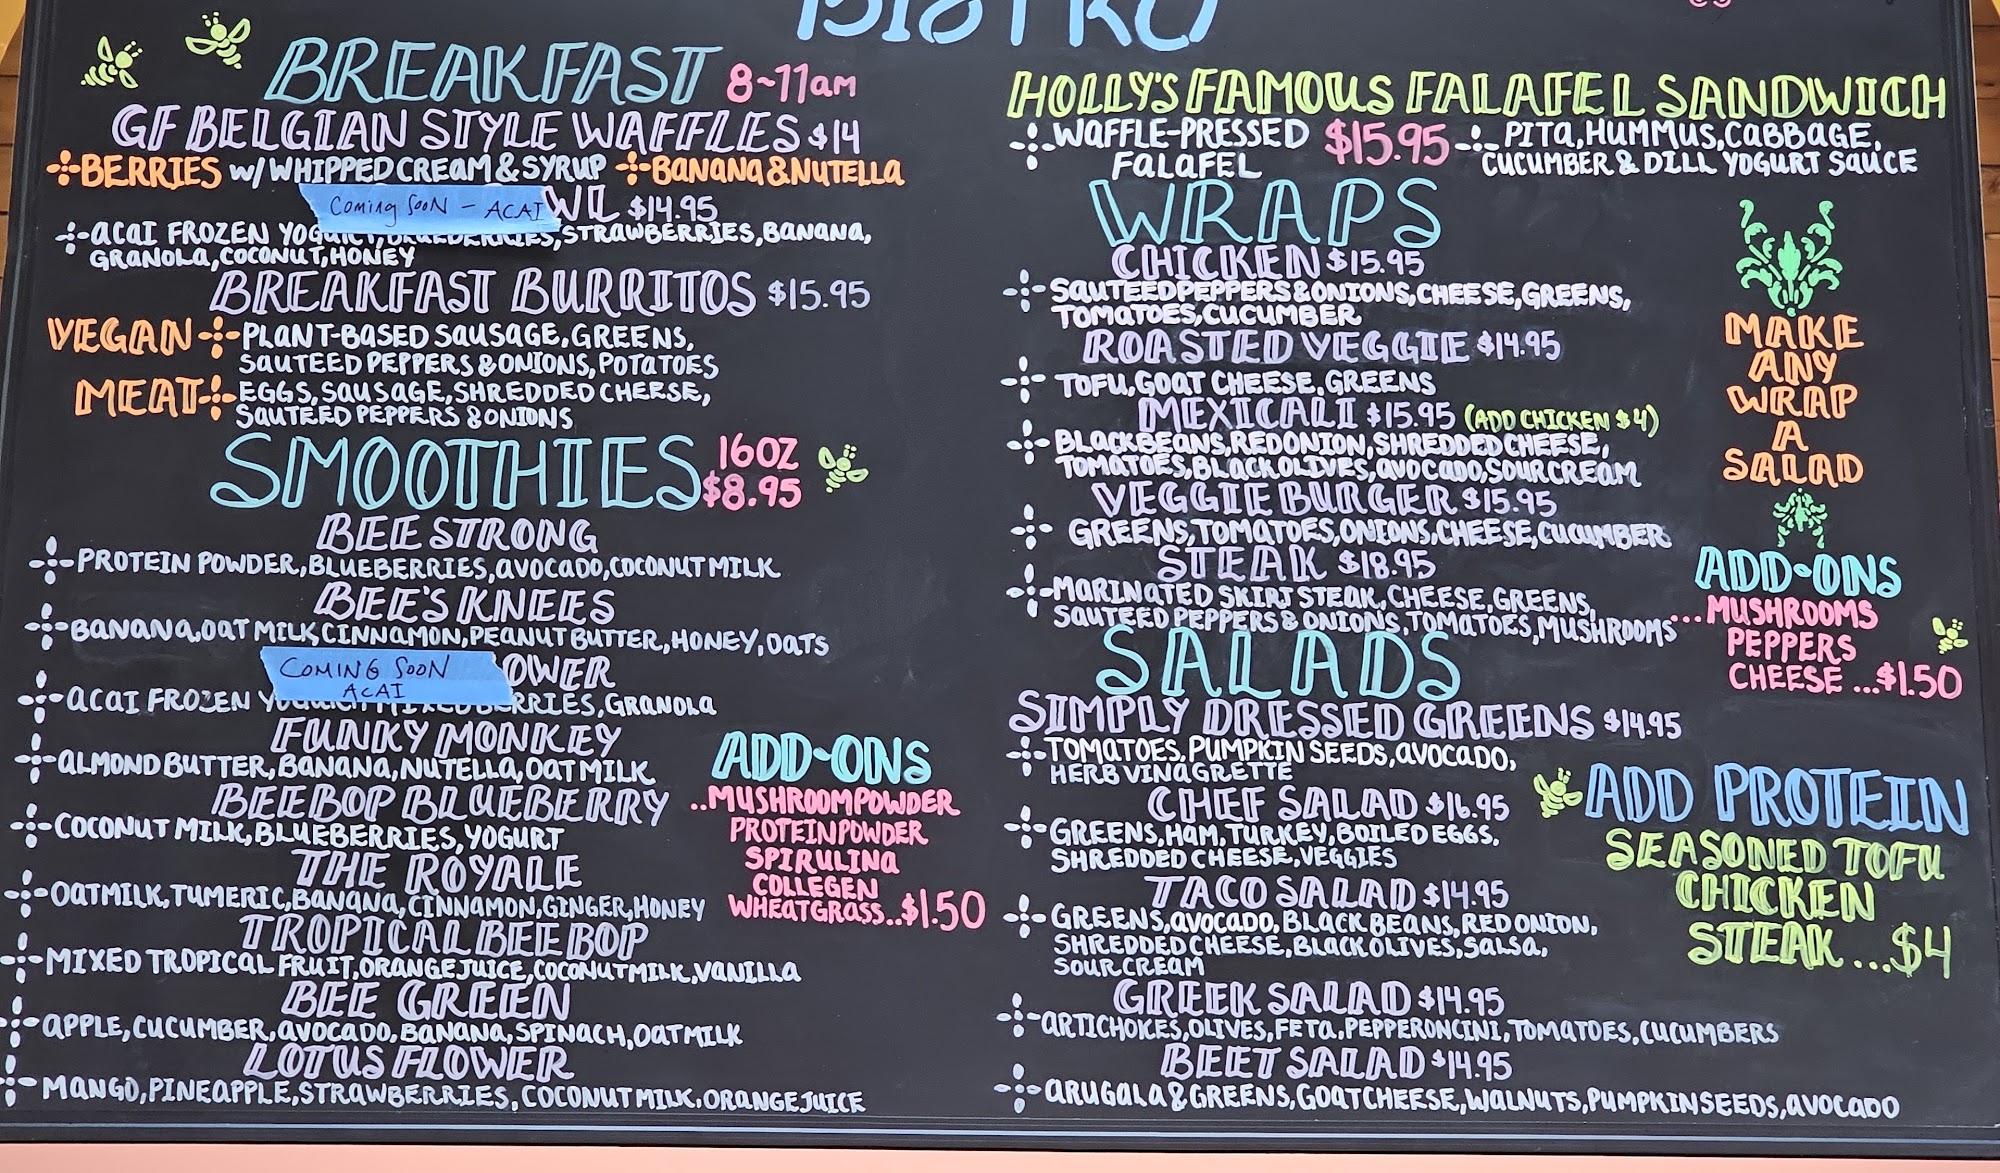 BISTRO
BREAKFAST 8~11am
GF BELGIAN STYLE WAFFLES $14
BERRIES w/ WHIPPED CREAM & SYRUP BANANA & NUTELLA
Coming Soon - ACAI WL $14.95
ACAI FROZEN YOGURT, BLUEBERRIES, STRAWBERRIES, BANANA,
GRANOLA, COCONUT, HONEY
BREAKFAST BURRITOS $15.95
VEGAN PLANT-BASED SAUSAGE, GREENS,
SAUTEED PEPPERS & ONIONS, POTATOES
MEAT EGGS, SAUSAGE, SHREDDED CHEESE,
SAUTEED PEPPERS & ONIONS
SMOOTHIES 16OZ
$8.95
BEE STRONG
PROTEIN POWDER, BLUEBERRIES, AVOCADO, COCONUT MILK
BEE'S KNEES
BANANA, OAT MILK, CINNAMON, PEANUT BUTTER, HONEY, OATS
COMING SOON OWER
ACAI
ACAI FROZEN YOGURT, MIXED BERRIES, GRANOLA
FUNKY MONKEY
ALMOND BUTTER, BANANA, NUTELLA, OAT MILK
BEE BOP BLUEBERRY
COCONUT MILK, BLUEBERRIES, YOGURT
THE ROYALE
OATMILK, TUMERIC, BANANA, CINNAMON, GINGER, HONEY
TROPICAL BEE BOP
MIXED TROPICAL FRUIT, ORANGE JUICE, COCONUT MILK, VANILLA
BEE GREEN
APPLE, CUCUMBER, AVOCADO, BANANA, SPINACH, OATMILK
LOTUS FLOWER
MANGO, PINEAPPLE, STRAWBERRIES, COCONUT MILK, ORANGE JUICE
ADD-ONS
..MUSHROOM POWDER
PROTEIN POWDER
SPIRULINA
COLLEGEN
WHEATGRASS..$1.50
HOLLY'S FAMOUS FALAFEL SANDWICH
WAFFLE-PRESSED
FALAFEL
$15.95
PITA, HUMMUS, CABBAGE,
CUCUMBER & DILL YOGURT SAUCE
WRAPS
CHICKEN $15.95
SAUTEED PEPPERS & ONIONS, CHEESE, GREENS,
TOMATOES, CUCUMBER
ROASTED VEGGIE $14.95
TOFU, GOAT CHEESE, GREENS
MEXICALI $15.95 (ADD CHICKEN $4)
BLACK BEANS, RED ONION, SHREDDED CHEESE,
TOMATOES, BLACK OLIVES, AVOCADO, SOUR CREAM
VEGGIE BURGER $15.95
GREENS, TOMATOES, ONIONS, CHEESE, CUCUMBER
STEAK $18.95
MARINATED SKIRT STEAK, CHEESE, GREENS,
SAUTEED PEPPERS & ONIONS, TOMATOES, MUSHROOMS
MAKE
ANY
WRAP
A
SALAD
ADD-ONS
...MUSHROOMS
PEPPERS
CHEESE ...$1.50
SALADS
SIMPLY DRESSED GREENS $14.95
TOMATOES, PUMPKIN SEEDS, AVOCADO,
HERB VINAGRETTE
CHEF SALAD $16.95
GREENS, HAM, TURKEY, BOILED EGGS,
SHREDDED CHEESE, VEGGIES
TACO SALAD $14.95
GREENS, AVOCADO, BLACK BEANS, RED ONION,
SHREDDED CHEESE, BLACK OLIVES, SALSA,
SOUR CREAM
GREEK SALAD $14.95
ARTICHOKES, OLIVES, FETA, PEPPERONCINI, TOMATOES, CUCUMBERS
BEET SALAD $14.95
ARUGALA & GREENS, GOAT CHEESE, WALNUTS, PUMPKIN SEEDS, AVOCADO
ADD PROTEIN
SEASONED TOFU
CHICKEN
STEAK ...$4